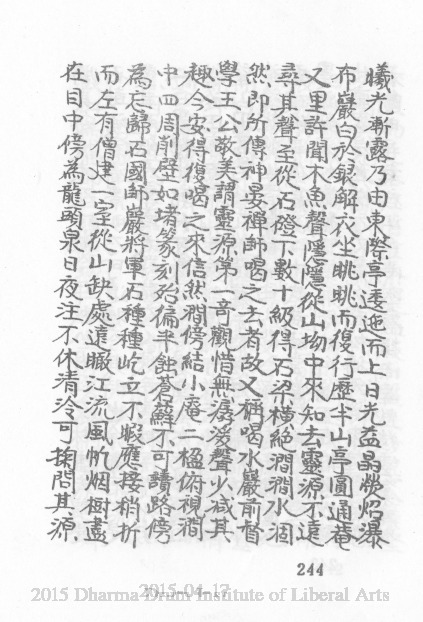 曦光漸露乃由東際亭逶迤而上日光益晶熒炤瀑
布巖白於銀解衣坐眺眺而復行歷半山亭圓通菴
又里許聞木魚聲隱隱從山坳中來知去靈源不遠
尋其聲至從石磴下數十級得石梁橫絕澗澗水涸
然即所傳神晏禪師喝之去者故又稱喝水巖前督
學王公敬美謂靈源第一奇觀惜無潺湲聲少减其
趣今安得復喝之來信然澗傍結小庵二楹俯視澗
中四周削壁如堵篆刻殆徧半蝕蒼蘚不可讀路傍
為忘歸石國師巖將軍石種種屹立不暇應接梢折
而左有僧建一室從山缺處遠瞰江流風帆烟樹盡
在目中傍為龍頭泉日夜注不休清泠可掬問其源
244
2015-04-17
2015 Dharma Drum Institute of Liberal Arts